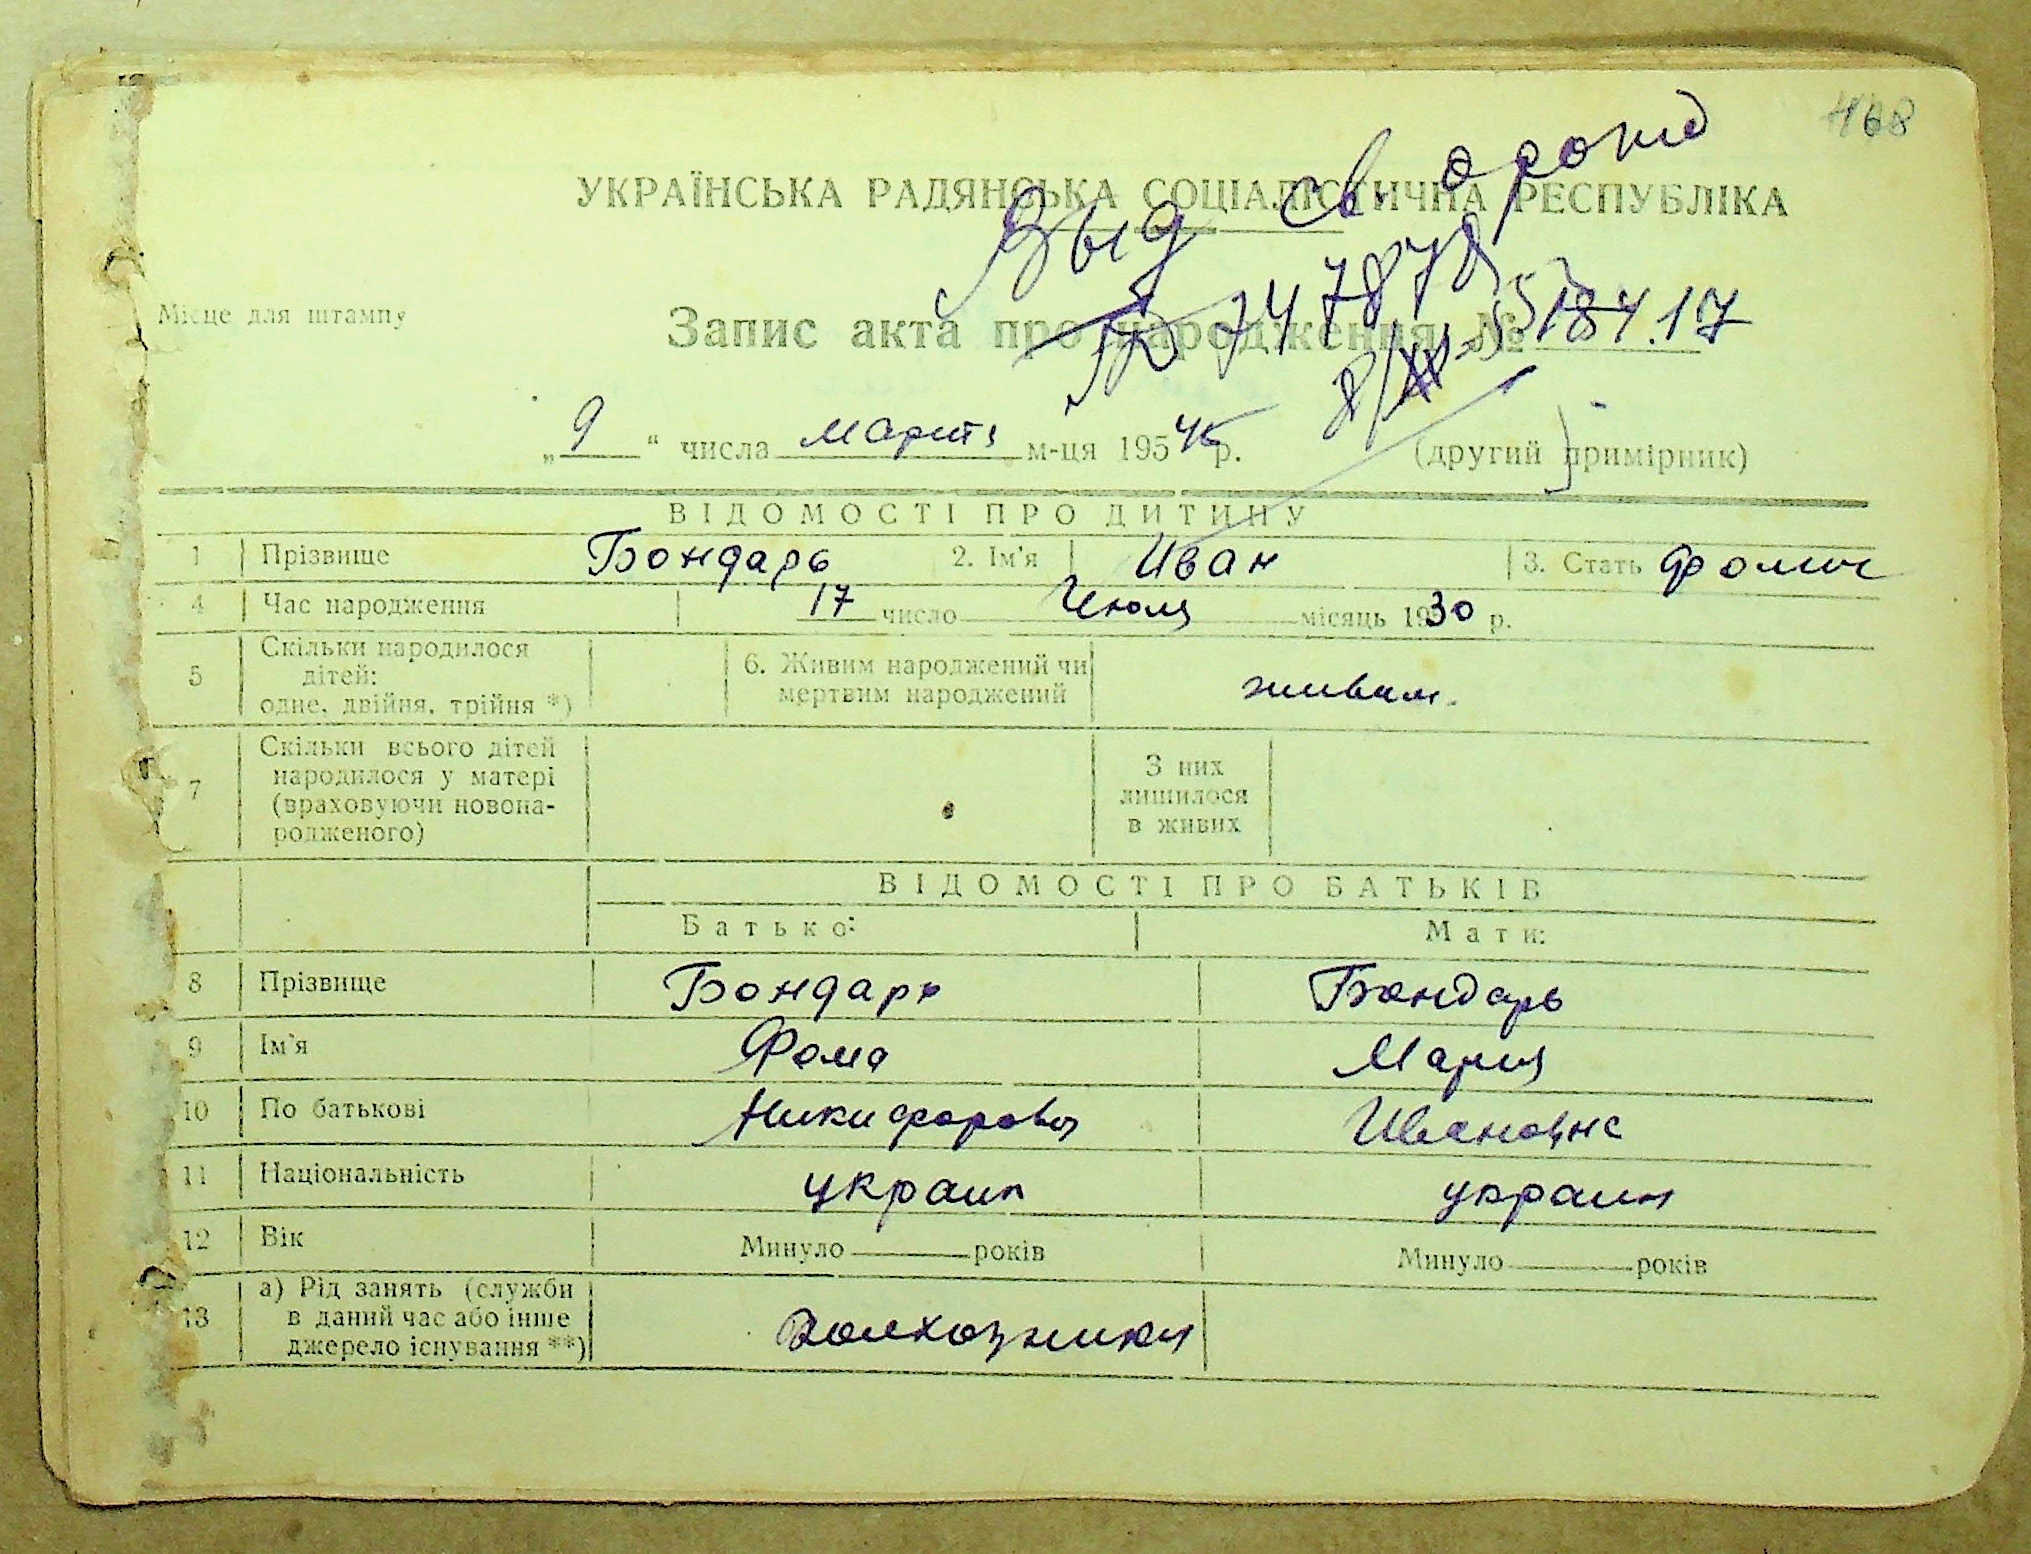 468
Выд св. о рожд
УКРАЇНСЬКА РАДЯНСЬКА СОЦІАЛІСТИЧНА РЕСПУБЛІКА
747878
Місце для штампу
Запис акта про народження № 184.17
„ 9 “ числа марта м-ця 195 р.
(другий примірник)
ВІДОМОСТІ ПРО ДИТИНУ
1 Прізвище Бондарь 2. Ім'я Иван 3. Стать Фомич
4 Час народження 17 число Июля місяць 1930 р.
5 Скільки народилося дітей: одне, двійня, трійня *) 6. Живим народжений чи мертвим народжений живым.
7 Скільки всього дітей народилося у матері (враховуючи новонародженого) З них лишилося в живих
ВІДОМОСТІ ПРО БАТЬКІВ
Батько: Мати:
8 Прізвище Бондарь Бондарь
9 Ім'я Фома Мария
10 По батькові Никифорович Ивановна
11 Національність украин украин
12 Вік Минуло років Минуло років
13 а) Рід занять (служби в даний час або інше джерело існування **) Колхозники